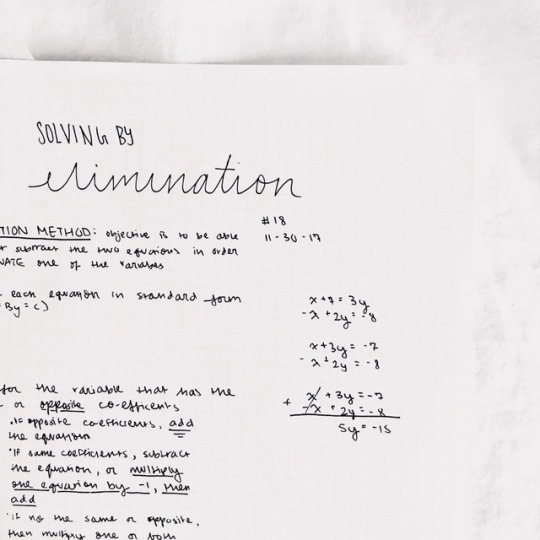 SOLVING BY
elimination
#18
TION METHOD: objective is to be able
11-30-17
subtract the two equations in order
NATE one of the variables
each equation in standard form
By = C)
x+7 = 3y
-x + 2y = -8
x+3y = -7
-x + 2y = -8
for the variable that has the
x + 3y = -7
or opposite co-efficents
+ -x + 2y = -8
.if opposite co-efficients, add
5y = -15
the equation
.If same coefficients, subtract
the equation, or multiply
one equation by -1, then
add
.if not the same or opposite,
then multiply one or both